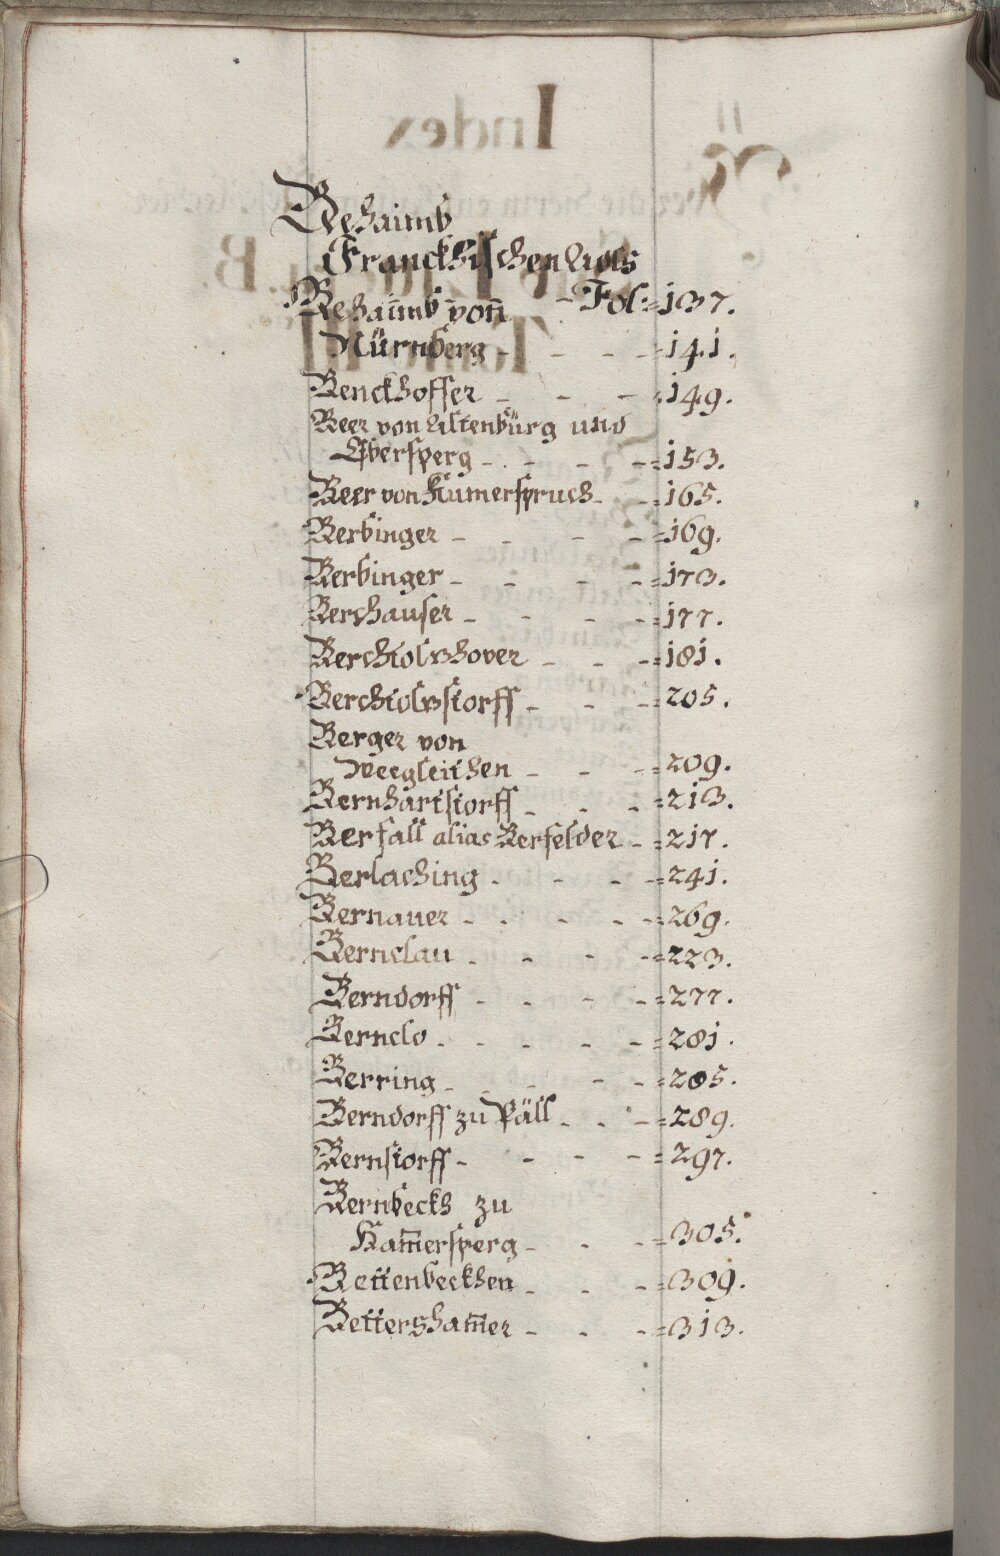 Behaimb
Franckhischen Adls
Behaimb von Fol: 137.
Nürnberg - - - 141.
Benckhoffer - - - 149.
Beer von Altenbürg und
Äbersperg - - - 153.
Beer von Kumerspruch - 165.
Berbinger - - - 169.
Berbinger - - - - 173.
Berchauser - - - - 177.
Berchtolßhover - - - 181.
Berchtolßstorff - - - 205.
Berger von
Weegleithen - - - 209.
Bernhartstorff - - - 213.
Berfall alias Berfelder - 217.
Berlaching - - - - 241.
Bernauer - - - - - 269.
Bernclau - - - - 223.
Berndorff - - - - 277.
Bernclo - - - - - 281.
Berring - - - - - 285.
Berndorff zu Päll - - - 289.
Bernstorff - - - - 297.
Bernbeckh zu
Kam̄ersperg - - - 305.
Bettenbeckhen - - - 309.
Bettersham̄er - - - 313.